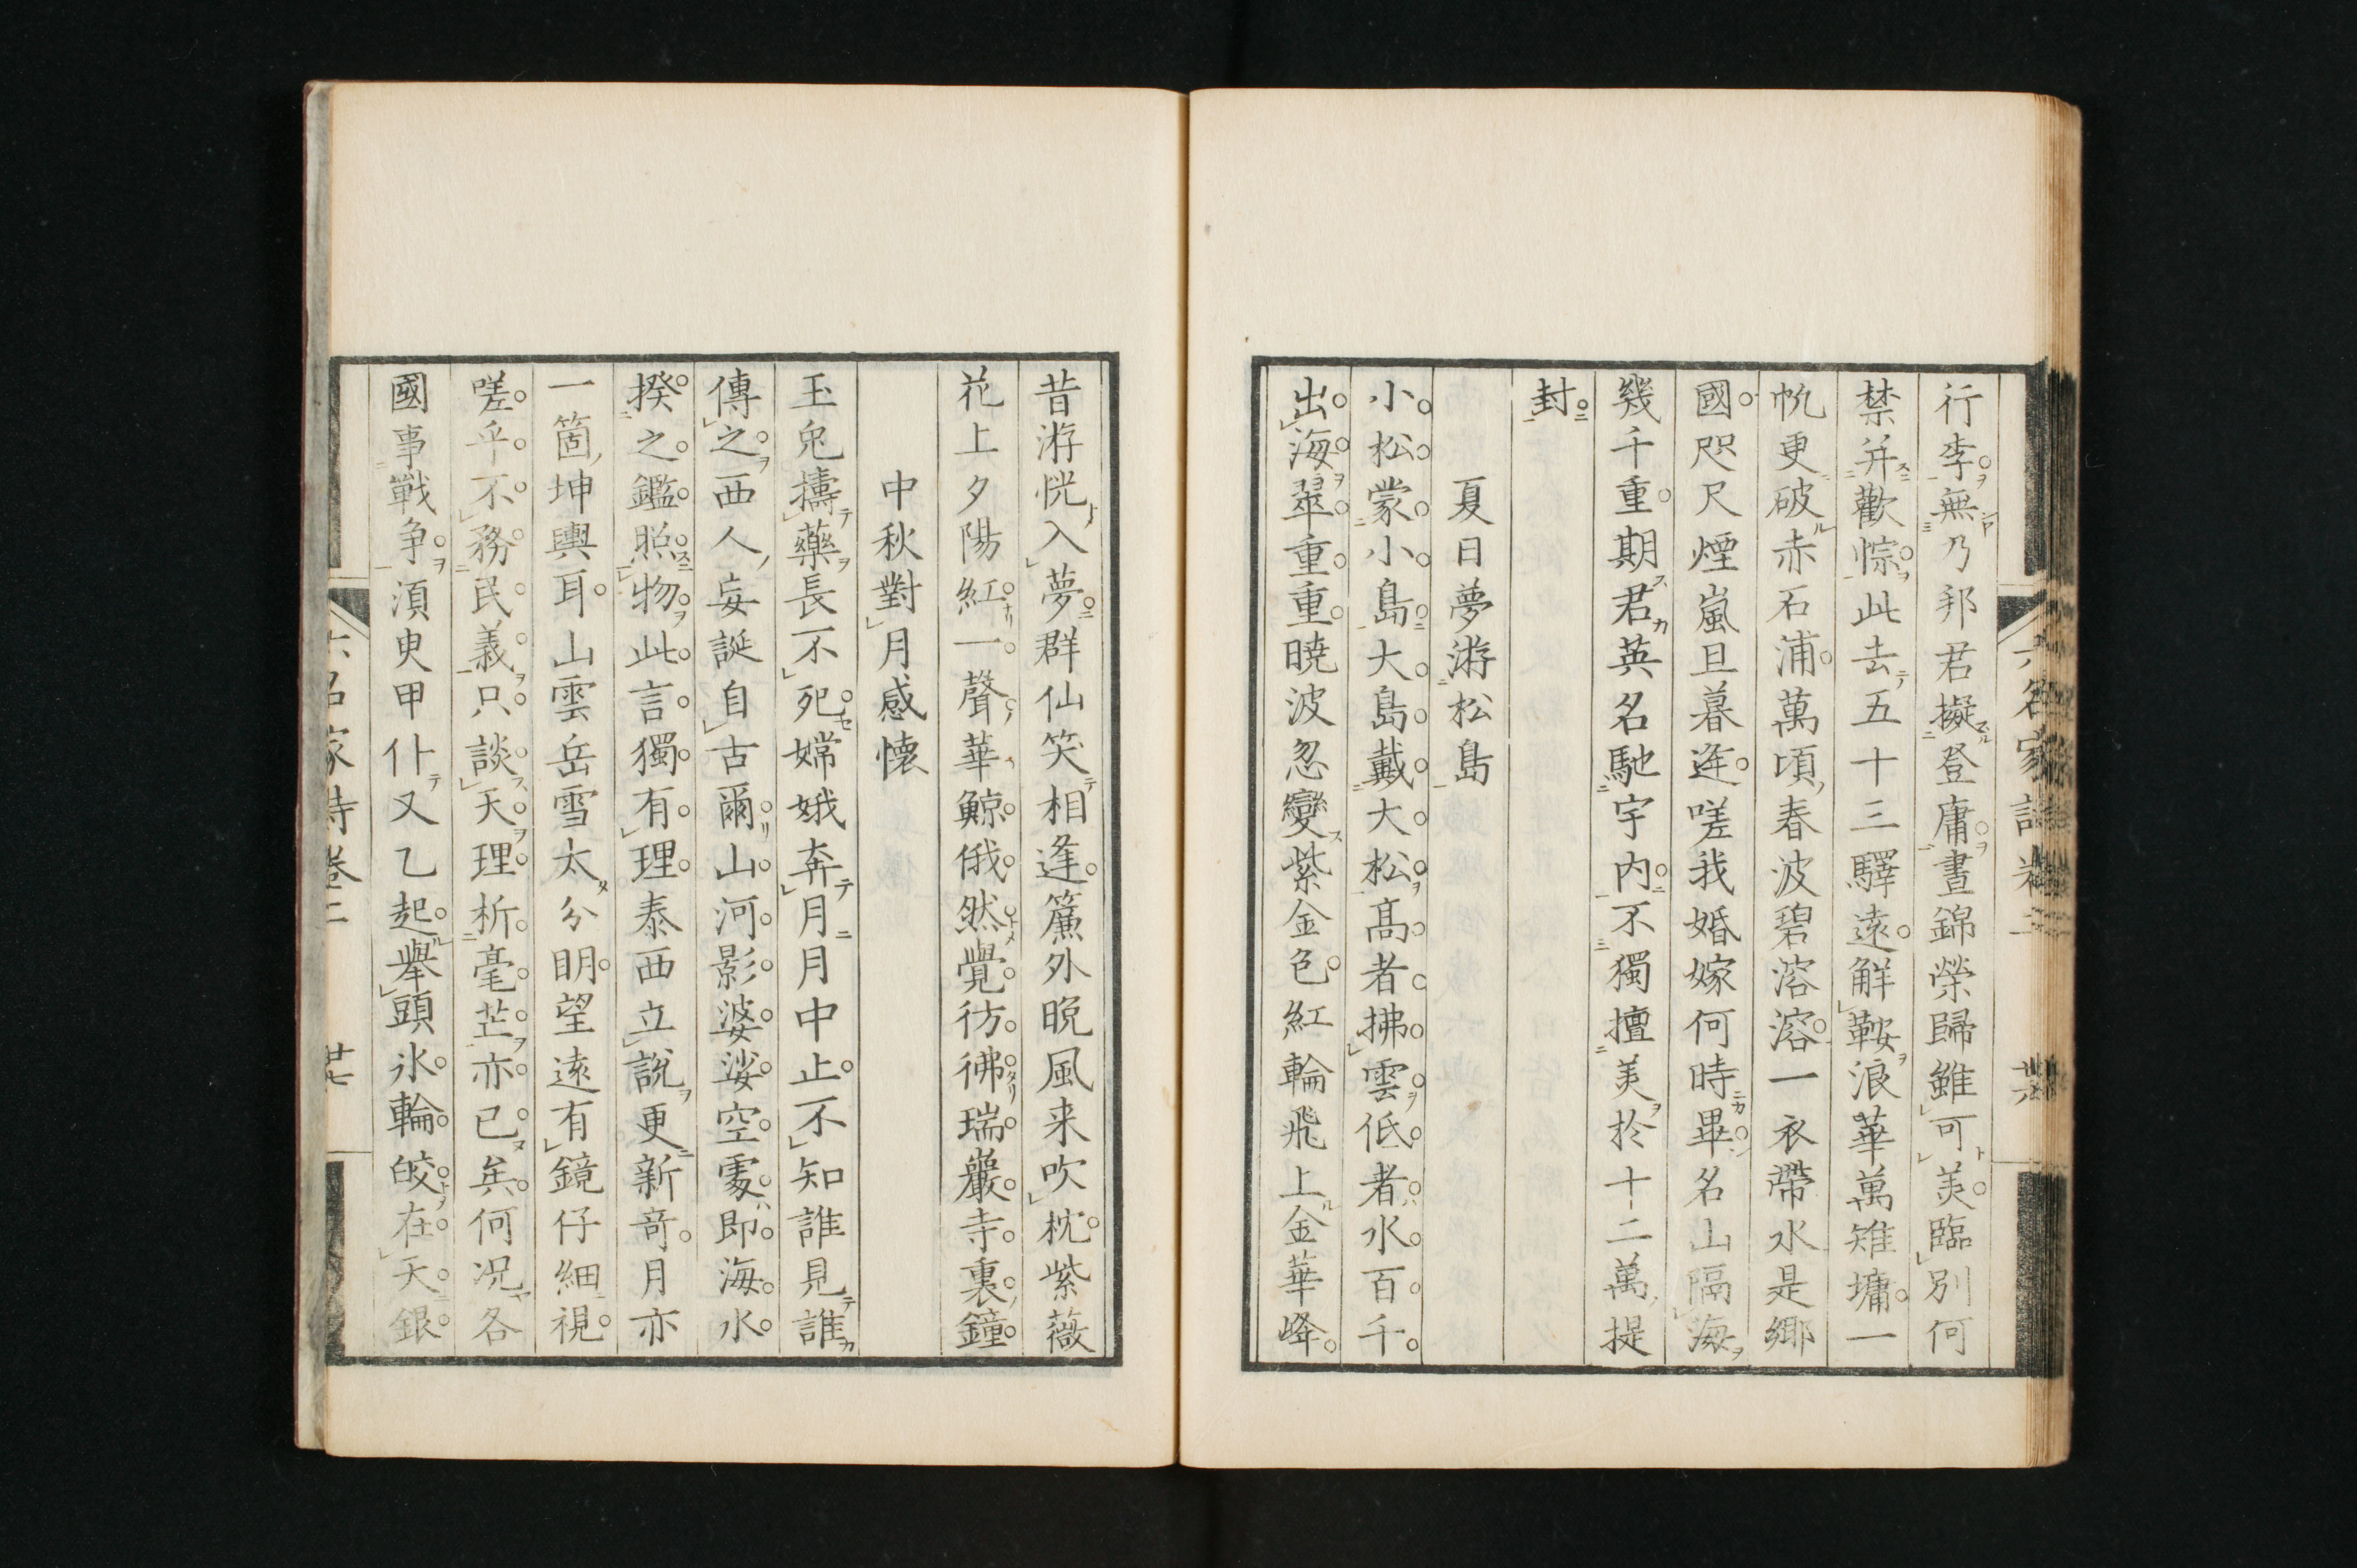 行李無乃邦君擬登庸晝錦榮歸雖可羨臨別何
禁幷歡悰此去五十三驛遠解鞍浪華萬雉墉一
帆更破赤石浦萬頃春波碧溶溶一衣帶水是鄉
國咫尺煙嵐旦暮逢嗟我婚嫁何時畢名山隔海
幾千重期君英名馳宇內不獨擅美於十二萬提
封
夏日夢游松島
小松蒙小島大島戴大松髙者拂雲低者水百千
出海翠重重曉波忽變紫金色紅輪飛上金華峰
昔游恍入夢群仙笑相逢簾外晚風来吹枕紫薇
花上夕陽紅一聲華鯨俄然覺彷彿瑞巖寺裏鐘
中秋對月感懷
玉兔擣藥長不死嫦娥奔月月中止不知誰見誰
傳之西人妄誕自古爾山河影婆娑空處即海水
揆之鑑照物此言獨有理泰西立說更新奇月亦
一箇坤輿耳山雲岳雪太分明望遠有鏡仔細視
嗟乎不務民義只談天理析毫芒亦已矣何況各
國事戰爭須臾甲仆又乙起舉頭氷輪皎在天銀
六名家詩卷二 廿六
六名家詩卷二 廿七